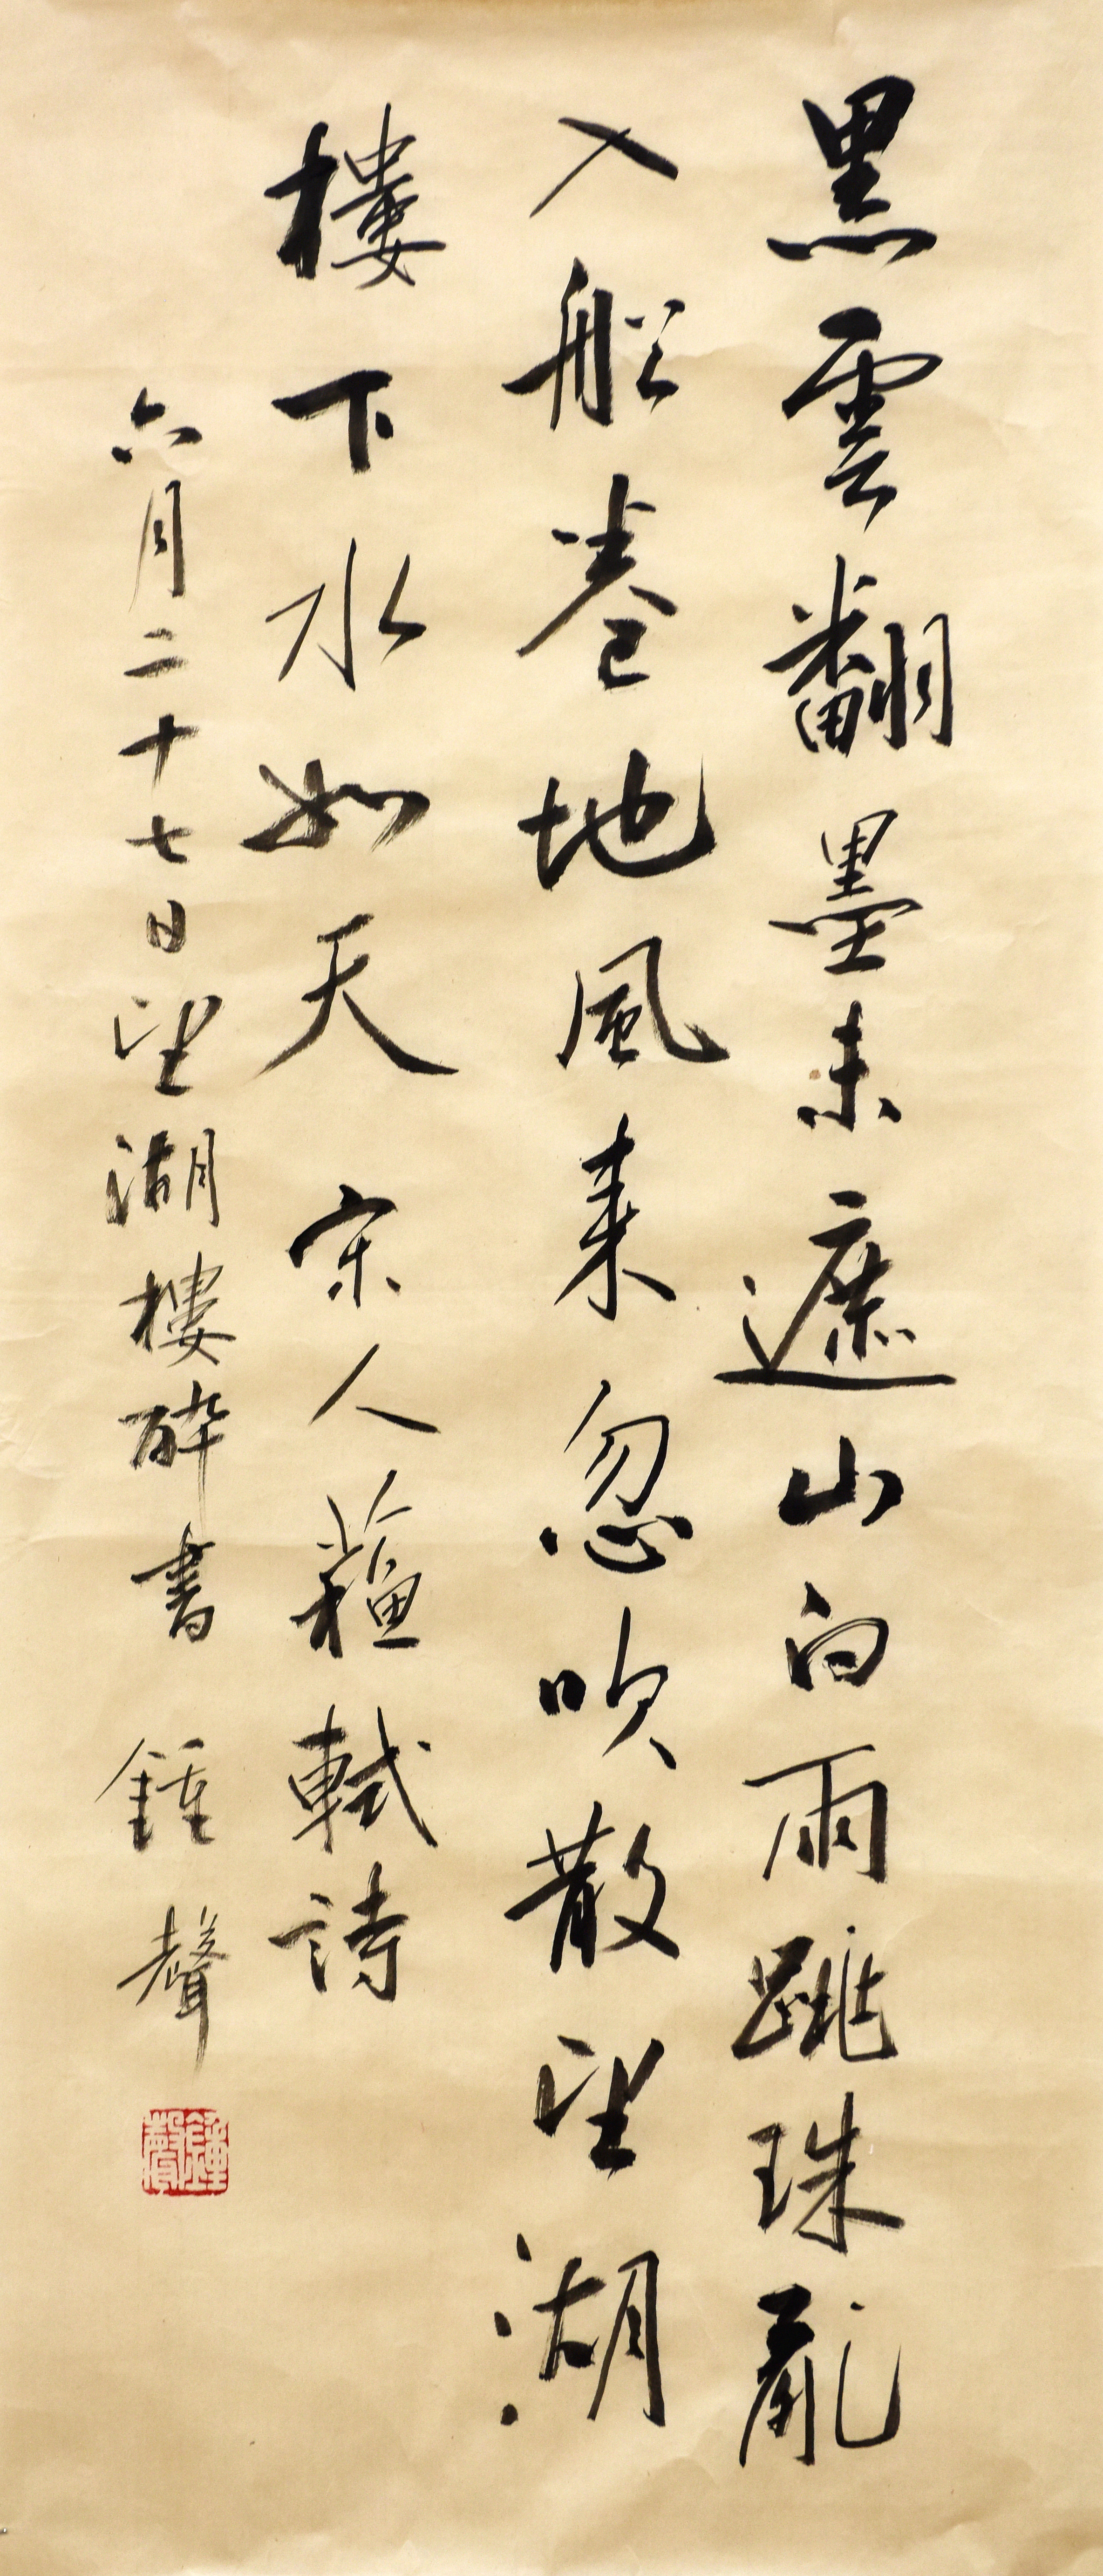 黑雲翻墨未遮山白雨跳珠亂
入船卷地風來忽吹散望湖
樓下水如天 宋人蘓軾詩
六月二十七日望湖樓醉書 鍾聲
鍾聲